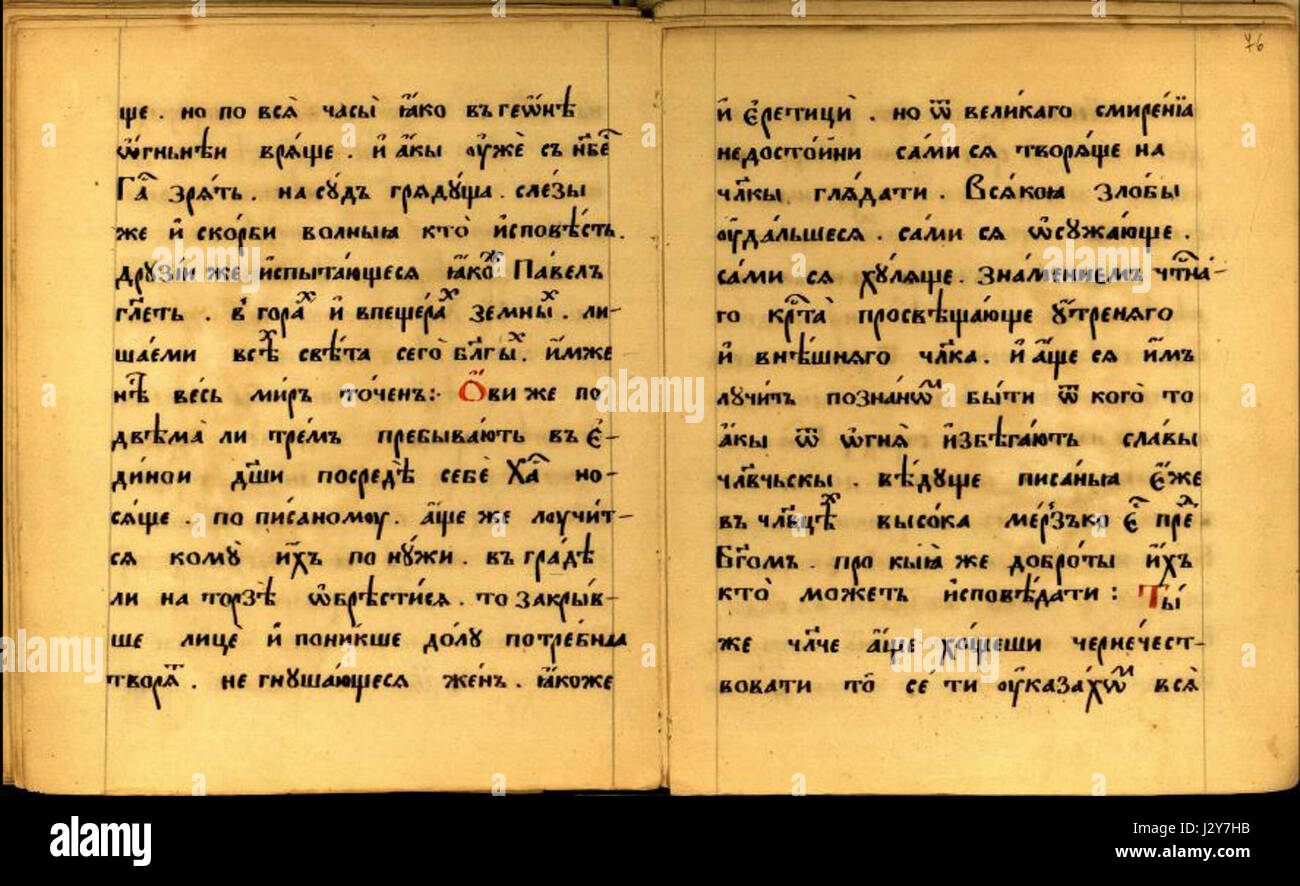 ще. но по всѧ̀ часы̀ ꙗ҆́ко въ геѡ҆́нѣ
ѡ҆́гньнѣи врѧ́ще. и҆ а҆́кы ᲂу҆жѐ съ нб҃сѐ
Га҃ зрѧ́ть. на сꙋ́дъ грѧдꙋ́ща. сле́зы
же и҆ ско́рби волныꙗ кто̀ и҆сповѣ́сть.
дрꙋзі́и же и҆спыта́ющесѧ ꙗ҆́коⷤ Па́велъ
гл҃етъ. в̾ гора́ⷯ и҆ впеще́раⷯ земны́ⷯ. ли-
ша́еми всѣ́ⷯ свѣ́та сегѡ̀ бл҃гы́ⷯ. и҆́мже
нѣ́ⷭ весь ми́ръ то́ченъ: Ѻ҆́ви же по
двѣма̀ ли тре́мъ пребыва́ютъ въ є҆-
ди́нои дш҃и посредѣ̀ себѐ Хⷭ҇а̀ но-
сѧ́ще. по пи́саномоу. а҆́ще же лоучи́т-
сѧ комꙋ̀ и҆́хъ по нꙋ́жи. въ гра́дѣ
ли на торзѣ̀ ѡ҆брѣсти́сѧ. то закры́в-
ше лицѐ и҆ пони́кше до́лꙋ потре́бнаа
творѧ́ⷮ. не гнꙋша́ющесѧ же́нъ. ꙗ҆́коже
76
и҆ є҆ретицѝ. но ѿ вели́каго смире́нїꙗ
недосто́йни са́ми сѧ творѧ́ще на
чл҃кы глѧ́дати. Всѧ́коꙗ зло́бы
ᲂу҆да́льшесѧ. са́ми сѧ ѡ҆сꙋжа́юще.
са́ми сѧ хꙋ́лѧще. зна́менїемъ чⷭ҇тна́-
го крⷭ҇та̀ просвѣща́юще ᲂу҆́тренѧго
и҆ внѣ́шнѧго чл҃ка. и҆ а҆́ще сѧ и҆́мъ
лꙋчи́ть позна́нѡⷨ бы́ти ѿ кого̀ то
а҆́кы ѿ ѻ҆гнѧ̀ и҆збѣга́ютъ сла́вы
чл҃вчьскы. вѣ́дꙋще писа́ныꙗ є҆́же
въ чл҃вцѣⷯ высо́ка ме́рзъко є҆́ⷭ преⷣ
Бг҃омъ. про кы́ꙗ же добро́ты и҆́хъ
кто̀ мо́жетъ и҆сповѣ́дати: Ты́
же чл҃че а҆́ще хо́щеши чернечест-
вовати то̀ се́ ти ᲂу҆каза́хѡⷨ всѧ̀
alamy stock photo
alamy
Image ID: J2Y7HB
www.alamy.com